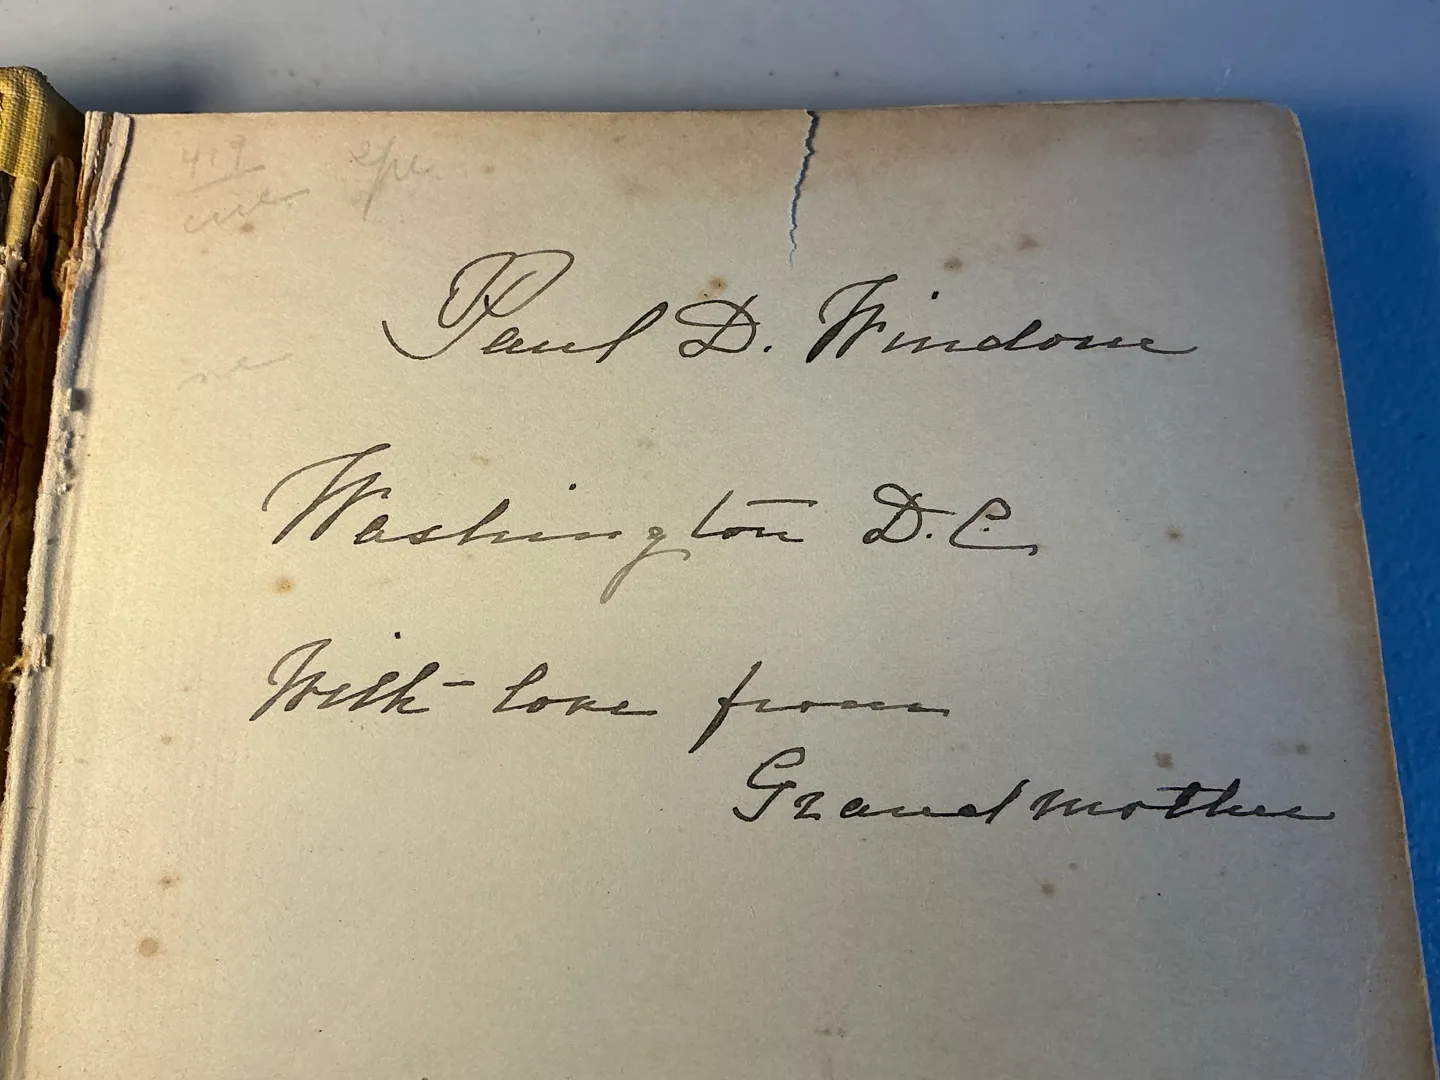 419
Paul D. Windom
Washington D.C.
With love from
Grandmother